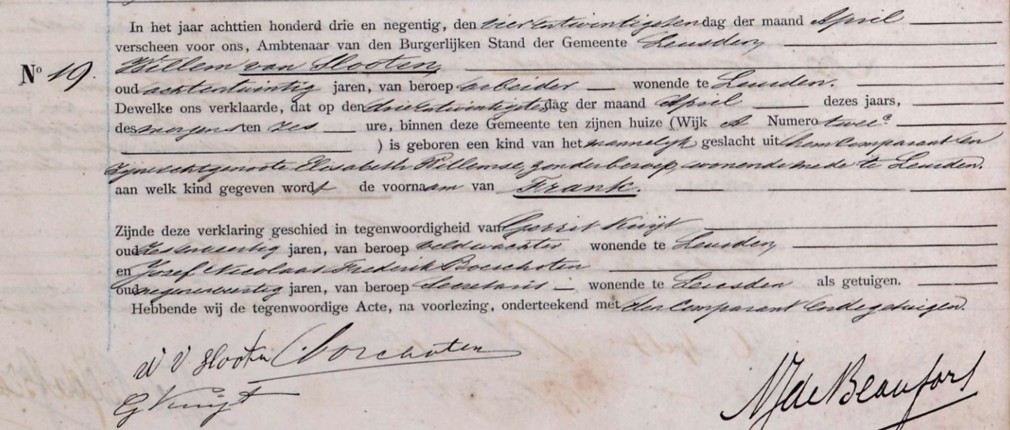 In het jaar achttien honderd drie en negentig, den vierentwintigsten dag der maand April
verscheen voor ons, Ambtenaar van den Burgerlijken Stand der Gemeente Leusden
Willem van Slooten,
No 19.
oud achtentwintig jaren, van beroep arbeider wonende te Leusden.
Dewelke ons verklaarde, dat op den drieentwintigsten dag der maand April dezes jaars,
des morgens ten zes ure, binnen deze Gemeente ten zijnen huize (Wijk A Numero twee
) is geboren een kind van het mannelijk geslacht uit hem Comparant en
zijne echtgenoote Elisabeth Willemse, zonder beroep, wonende mede te Leusden.
aan welk kind gegeven wordt de voornaam van Frank.
Zijnde deze verklaring geschied in tegenwoordigheid van Gerrit Kuijt
oud jaren, van beroep veldwachter wonende te Leusden
en Josef Nicolaas Frederik Borschoten
oud negenenveertig jaren, van beroep Secretaris wonende te Leusden als getuigen.
Hebbende wij de tegenwoordige Acte, na voorlezing, onderteekend met den Comparant en de getuigen.
W V Slooten Borschoten
G Kuijt
de Beaufort